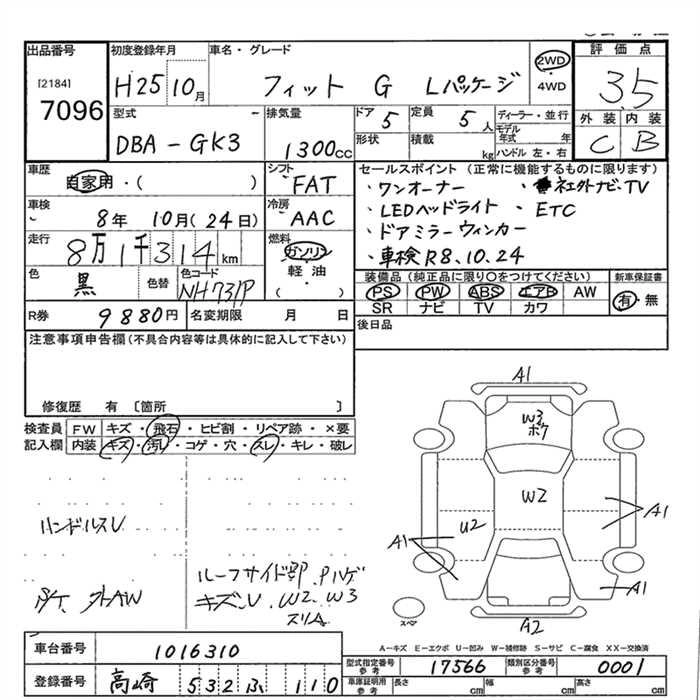 出品番号
[2184]
7096
初度登録年月
H25 10月
車名・グレード
フィット G Lパッケージ
2WD
・4WD
評価点
3.5
外装 内装
C B
型式
DBA-GK3
排気量
1300cc
ドア
5
形状
定員
5人
積載
kg
ディーラー・並行
モデル年式 年
ハンドル 左・右
車歴
自家用・( )
車検
8年 10月(24日)
走行
8万1千314km
色
黒
色替
色コード
NH731P
シフト
FAT
冷房
AAC
燃料
ガソリン
軽・油
( )
セールスポイント (正常に機能するものに限ります)
・ワンオーナー ・社外ナビ.TV
・LEDヘッドライト ・ETC
・ドアミラーウィンカー
・車検R8.10.24
装備品(純正品に限り○をつけてください)
PS PW ABS エアB AW
SR ナビ TV カワ
新車保証書
有・無
R券 9880円
名変期限 月 日
後日品
注意事項申告欄(不具合内容等は具体的に記入して下さい)
修復歴 有 〔箇所 〕
検査員記入欄
FW キズ・飛石・ヒビ割・リペア跡・×要
内装 キズ・汚レ・コゲ・穴・スレ・キレ・破レ
ハンドルスレ
外AW
ルーフサイド部.Pハゲ
キズ.U.W2.W3
スリA
A1
W3
ボケ
W2
U2
A1
A1
A1
A2
スペア
A-キズ E-エクボ U-凹み W-補修跡 S-サビ C-腐食 XX-交換済
車台番号
1016310
登録番号
高崎 532 ふ 110
型式指定番号
参考
17566
類別区分番号
参考
0001
車庫証明用
参考
長さ cm
幅 cm
高さ cm